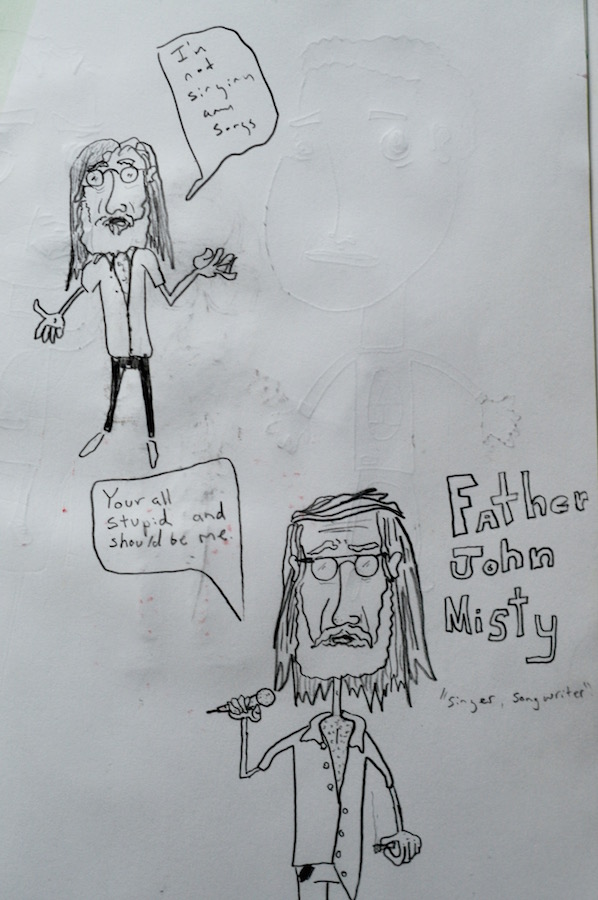 I'm
not
singing
any
songs
Your all
stupid and
should be me.
Father
John
Misty
"singer, songwriter"